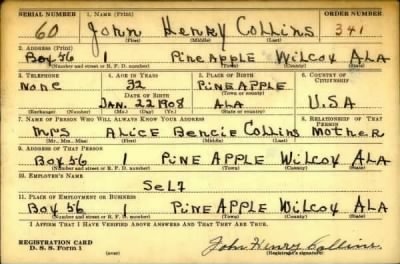 SERIAL NUMBER 1. NAME (Print) ORDER NUMBER
60 John Henry Collins 341
(First) (Middle) (Last)
2. ADDRESS (Print)
Box 56 1 Pine Apple Wilcox ALA
(Number and street or R. F. D. number) (Town) (County) (State)
3. TELEPHONE 4. AGE IN YEARS 5. PLACE OF BIRTH 6. COUNTRY OF CITIZENSHIP
None 32 PINE APPLE
DATE OF BIRTH (Town or county)
JAN. 22 1908 ALA U.S.A
(Exchange) (Number) (Mo.) (Day) (Yr.) (State or country)
7. NAME OF PERSON WHO WILL ALWAYS KNOW YOUR ADDRESS 8. RELATIONSHIP OF THAT PERSON
Mrs ALICE Bencie Collins Mother
(Mr., Mrs., Miss) (First) (Middle) (Last)
9. ADDRESS OF THAT PERSON
Box 56 1 PINE APPLE Wilcox ALA
(Number and street or R. F. D. number) (Town) (County) (State)
10. EMPLOYER'S NAME
Self
11. PLACE OF EMPLOYMENT OR BUSINESS
Box 56 PINE APPLE Wilcox ALA
(Number and street or R. F. D. number) (Town) (County) (State)
I AFFIRM THAT I HAVE VERIFIED ABOVE ANSWERS AND THAT THEY ARE TRUE.
REGISTRATION CARD
D. S. S. Form 1 (over) John Henry Collins
(Registrant's signature)